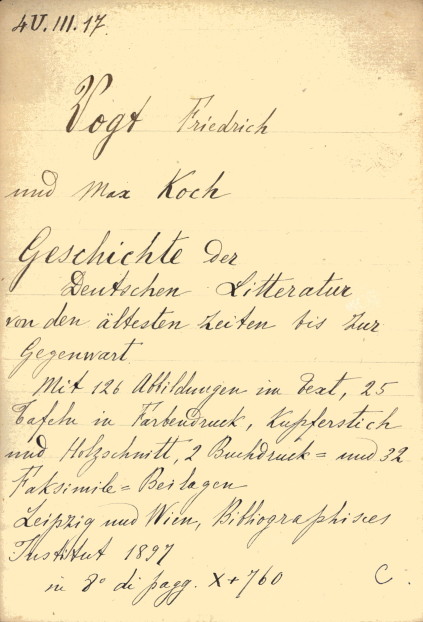 4U.III.17.
Vogt Friedrich
und Max Koch
Geschichte der
Deutschen Litteratur
von den ältesten Zeiten bis zur
Gegenwart
Mit 126 Abbildungen im Text, 25
Tafeln in Farbendruck, Kupferstich
und Holzschnitt, 2 Buchdruck= und 32
Faksimile=Beilagen
Leipzig und Wien, Bibliographisces
Institut 1897
in 8° di pagg. X+760 C.